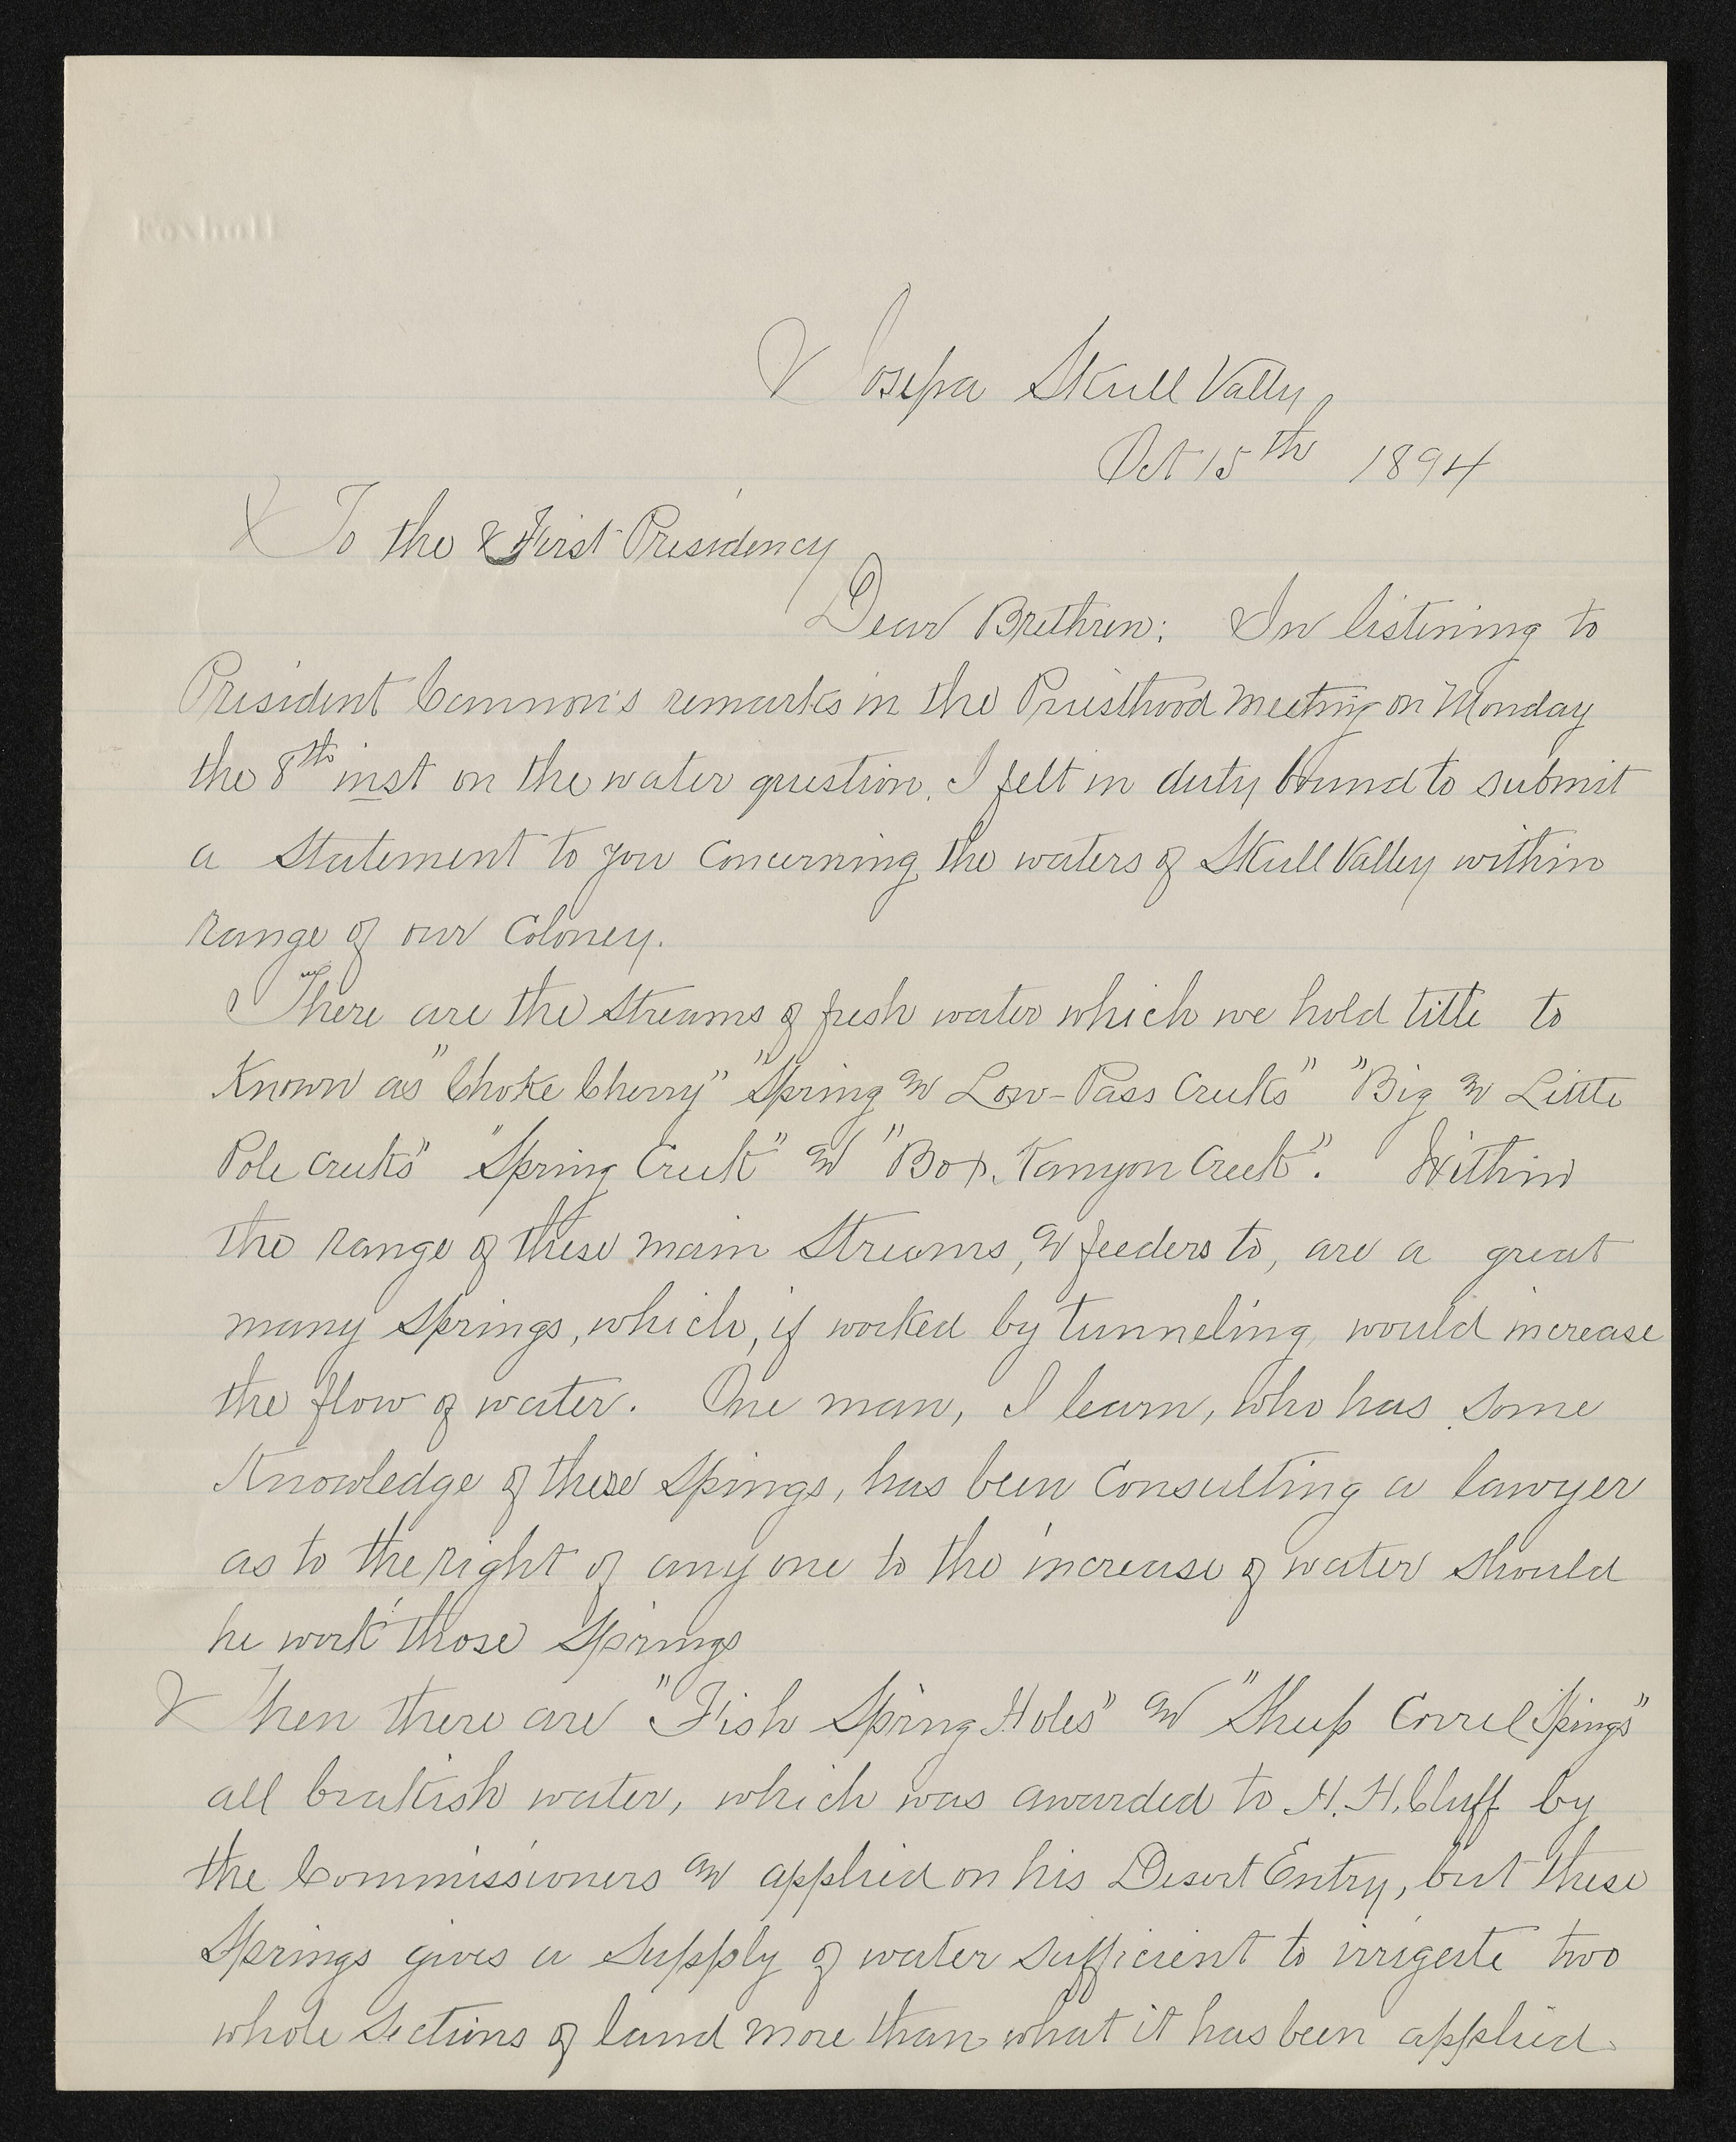 Foxhall
Iosepa Skull Vally,
Oct 15th 1894
To the First Presidency
Dear Brethren: In listening to
President Cannon's remarks in the Priesthood meeting on Monday
the 8th inst on the water question, I felt in duty bound to submit
a Statement to you Concerning the waters of Skull Valley within
range of our Coloney.
There are the streams of fresh water which we hold title to
Known as "Choke Cherry" "Spring & Low-Pass Creeks" "Big & Little
Pole creeks" "Spring Creek" & "Box Kanyon Creek". Within
the range of these main Streams, & feeders to, are a great
many Springs, which, if worked by tunneling, would increase
the flow of water. One man, I learn, who has some
Knowledge of these Spings, has been Consulting a lawyer
as to the right of any one to the increase of water should
he work those Springs
Then there are "Fish Spring Holes" & "Sheep Correl Spings"
all brakish water, which was awarded to H. H. Cluff by
the Commissioners & applied on his Desert Entry, but these
Springs gives a supply of water sufficient to irrigate two
whole Sections of land more than what it has been applied